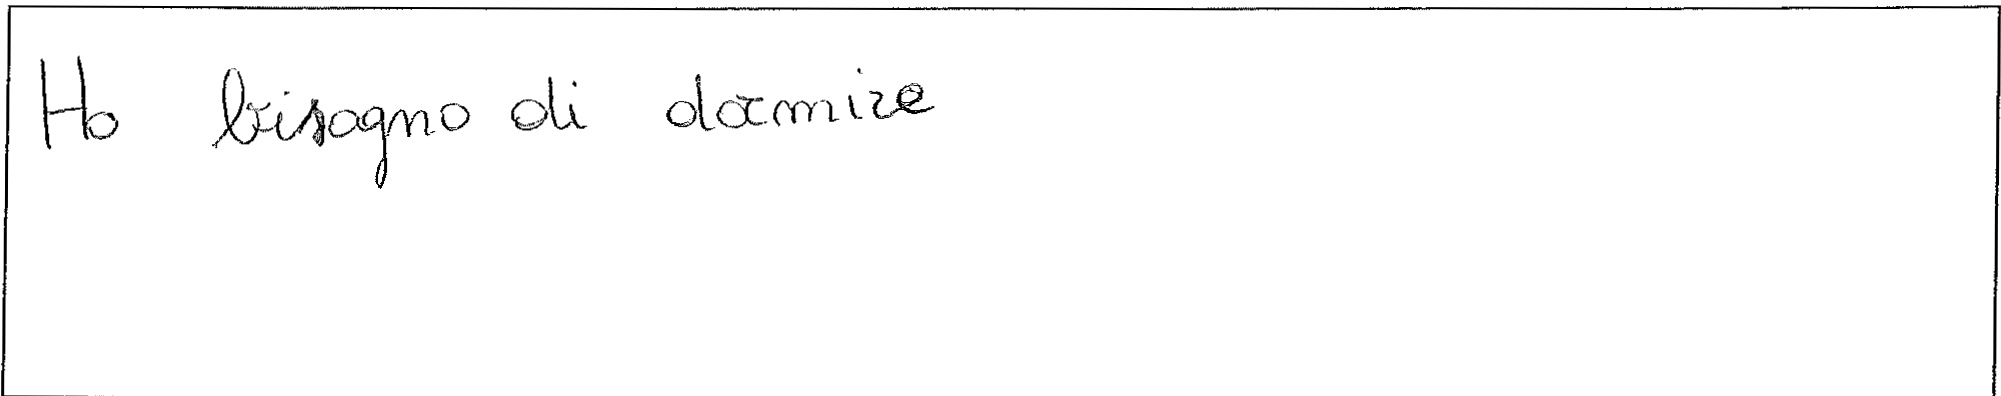 Ho bisogno di dormire